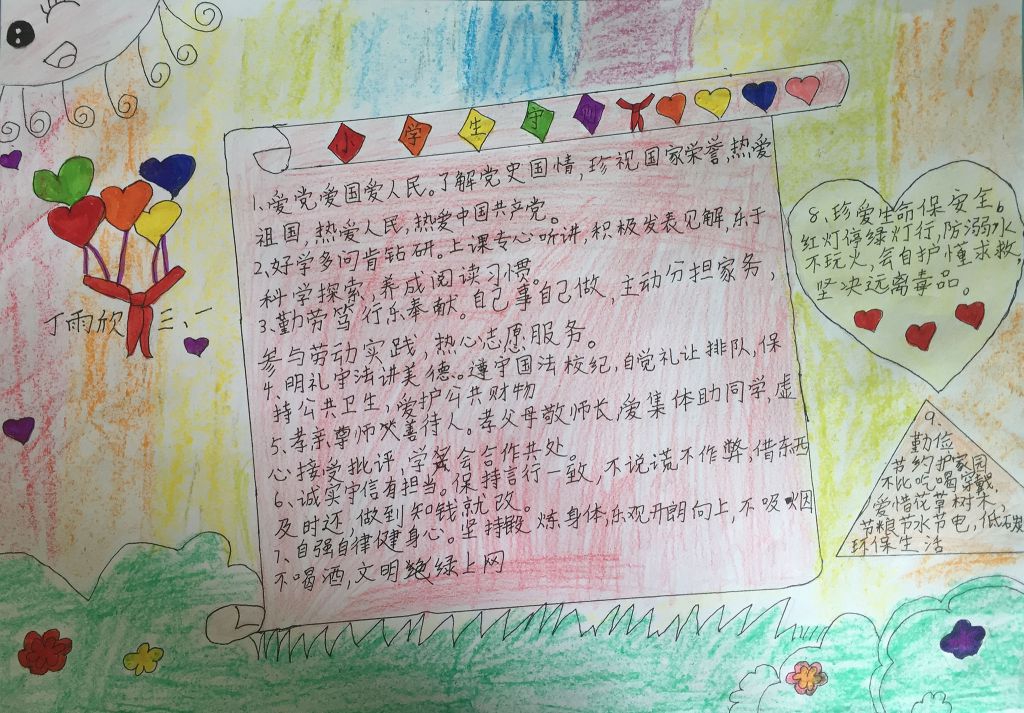 小学生守则
1、爱党爱国爱人民。了解党史国情,珍视国家荣誉,热爱
祖国,热爱人民,热爱中国共产党。
2、好学多问肯钻研。上课专心听讲,积极发表见解,乐于
科学探索,养成阅读习惯。
3、勤劳笃行乐奉献。自己事自己做,主动分担家务,
参与劳动实践,热心志愿服务。
4、明礼守法讲美德。遵守国法校纪,自觉礼让排队,保
持公共卫生,爱护公共财物
5、孝亲尊师善待人。孝父母敬师长,爱集体助同学,虚
心接受批评,学会合作共处。
6、诚实守信有担当。保持言行一致,不说谎不作弊,借东西
及时还,做到知钱就改。
7、自强自律健身心。坚持锻炼身体,乐观开朗向上,不吸烟
不喝酒,文明绝绿上网
8、珍爱生命保安全。
红灯停绿灯行,防溺水
不玩火,会自护懂求救,
坚决远离毒品。
9、
勤俭
节约护家园
不比吃喝穿戴,
爱惜花草树木,
节粮节水节电,低碳
环保生活
丁雨欣 三、一